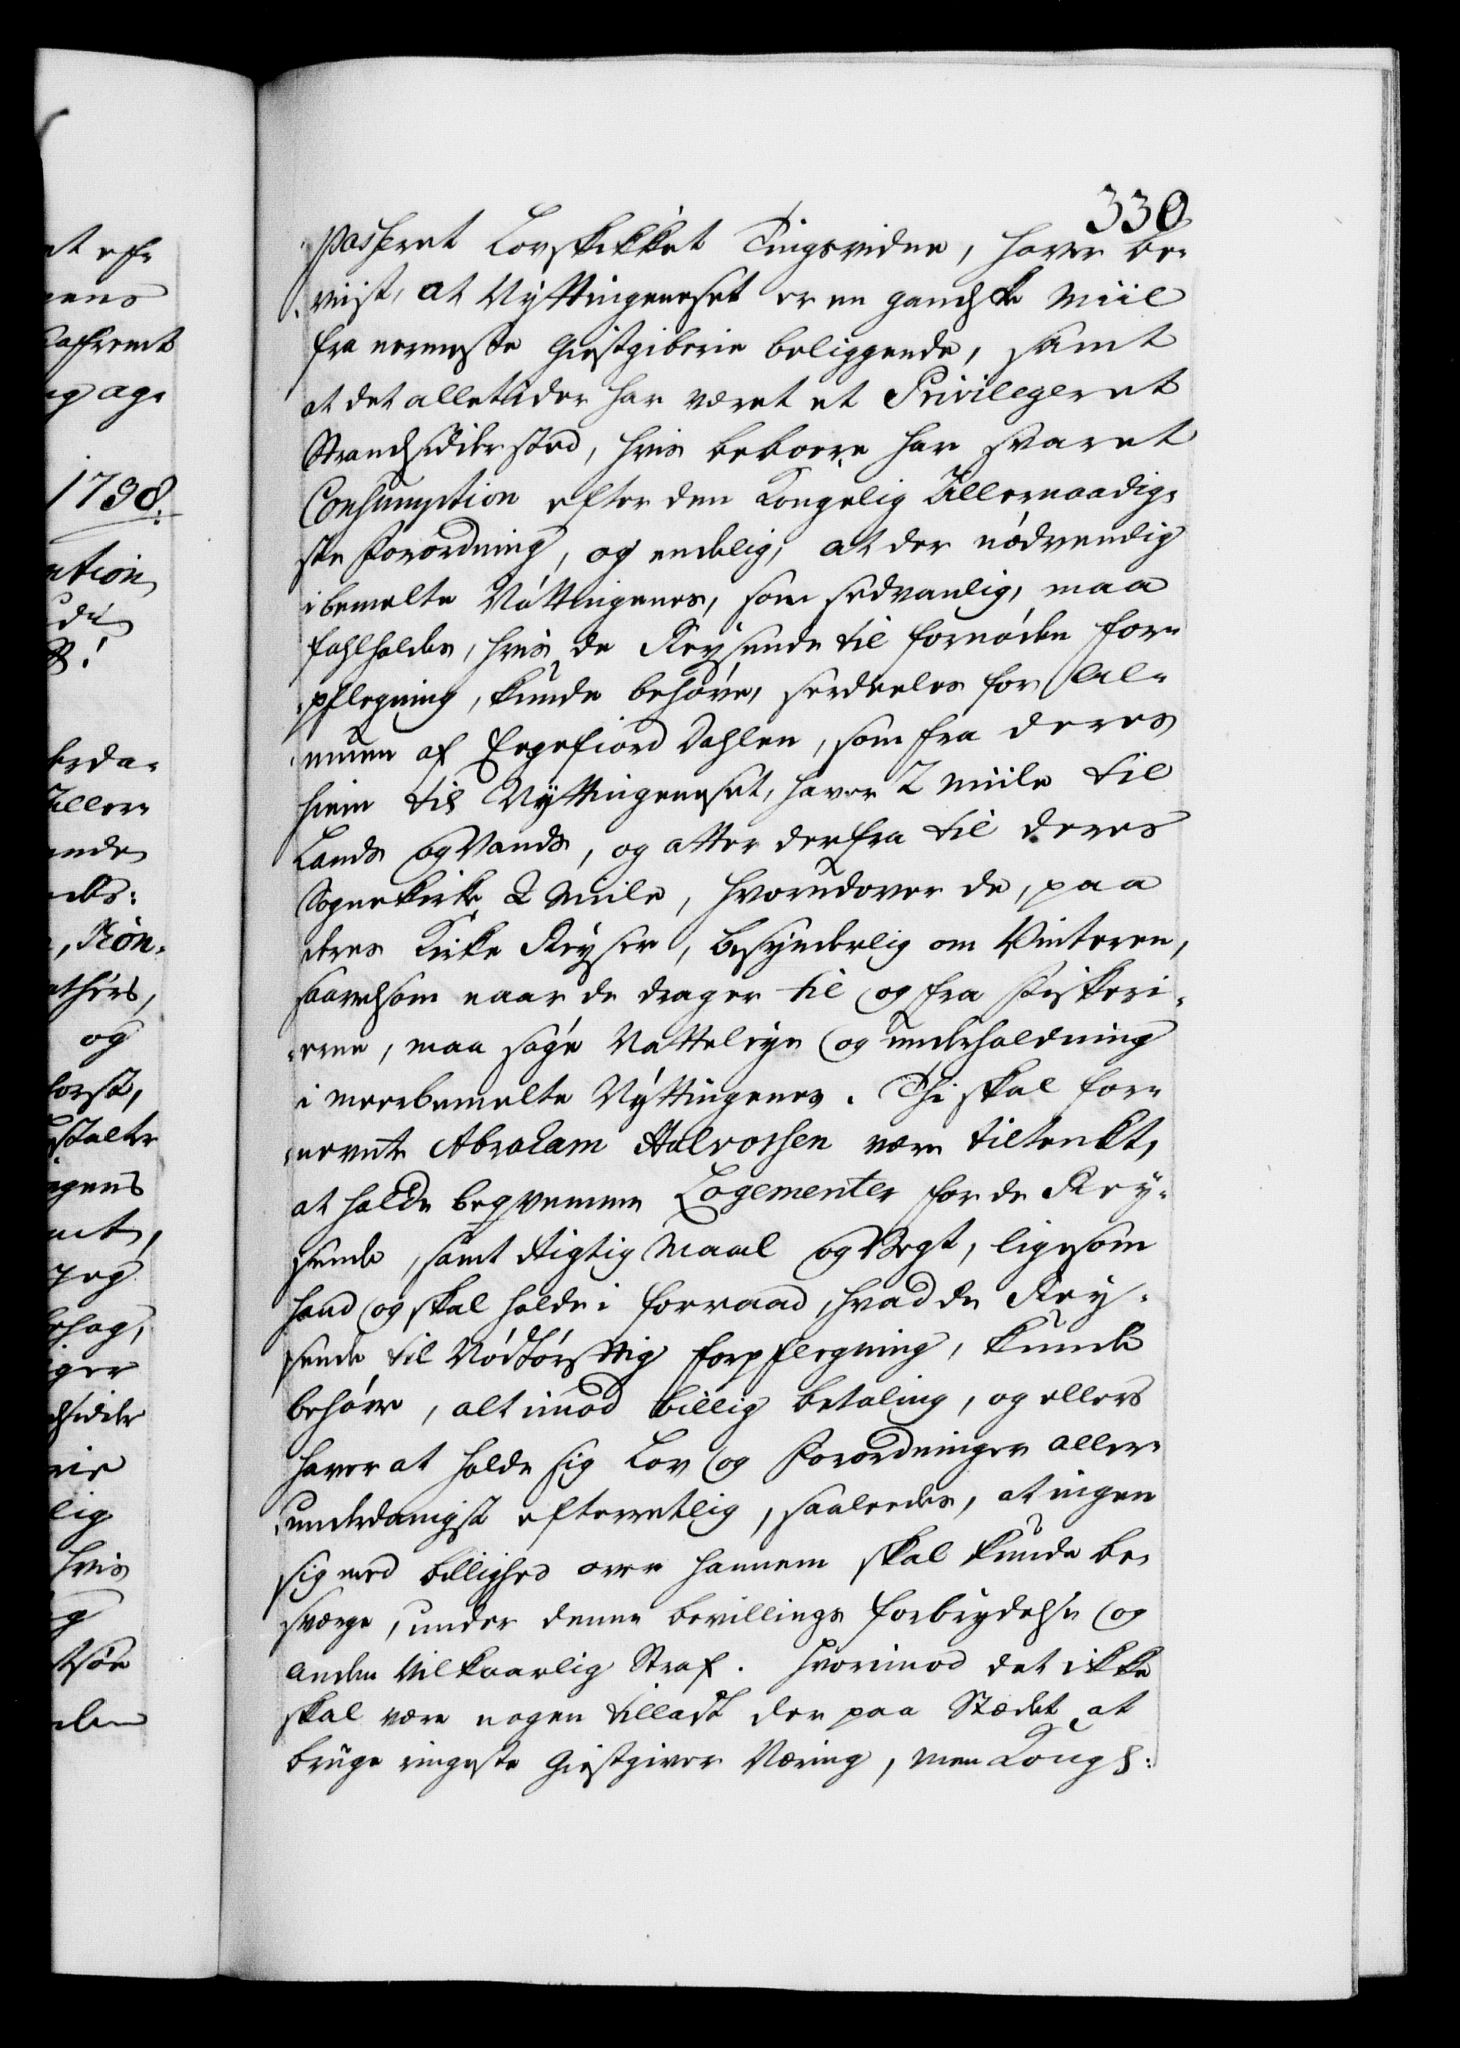 330
passeret Lovskikket Tingsvidne, haver be-
viist, at Nÿttingeneset er en gandske Miil
fra nermeste Giestgiberie beliggende, samt
at det alletider har været et Privilegeret
Strandsidder sted, hvis beboere har svaret
Consumption efter den Kongelig Allernaadig-
ste Forordning, og endelig, at der nødvendig
i bemelte Nÿttingenes, som sedvanlig, maa
fahlholdes, hvis de Reÿsende til fornøden for-
pflegning, kunde behøve, serdeeles for Al-
muen af Eegefiord Dahlen, som fra deres
hiem til Nÿttingeneset, haver 2 Miile til
Lands og Vands, og atter derfra til deres
Sognekirke 2 Miile, hvorudover de, paa
deres Kirke Reÿser, besÿnderlig om Vinteren,
saavelsom naar de drager til og fra Fiskeri-
erne, maa søge Natteleÿe og underholdning
i meerbemelte Nÿttingenes. Thi skal for-
nevnte Abraham Halvorsen være tiltenkt,
at holde beqvemme Logementer for de Reÿ-
sende, samt Rigtig Maal og Vegt, ligesom
hand og skal holde i forraad, hvad de Reÿ-
sende til Nødtørfftig forpflegning, kunde
behøve, alt imod billig betaling, og ellers
haver at holde sig Lov og Forordninger aller-
underdanigst efterretlig, saaleedes, at ingen
sig med billighed over hannem skal kunde be-
sværge, under denne bevillings forbrydelse og
anden Vilkaarlig Straf. Hvorimod det ikke
skal være nogen tilladt der paa Stædet at
bruge ringeste Giestgiver Næring, men Kongs: